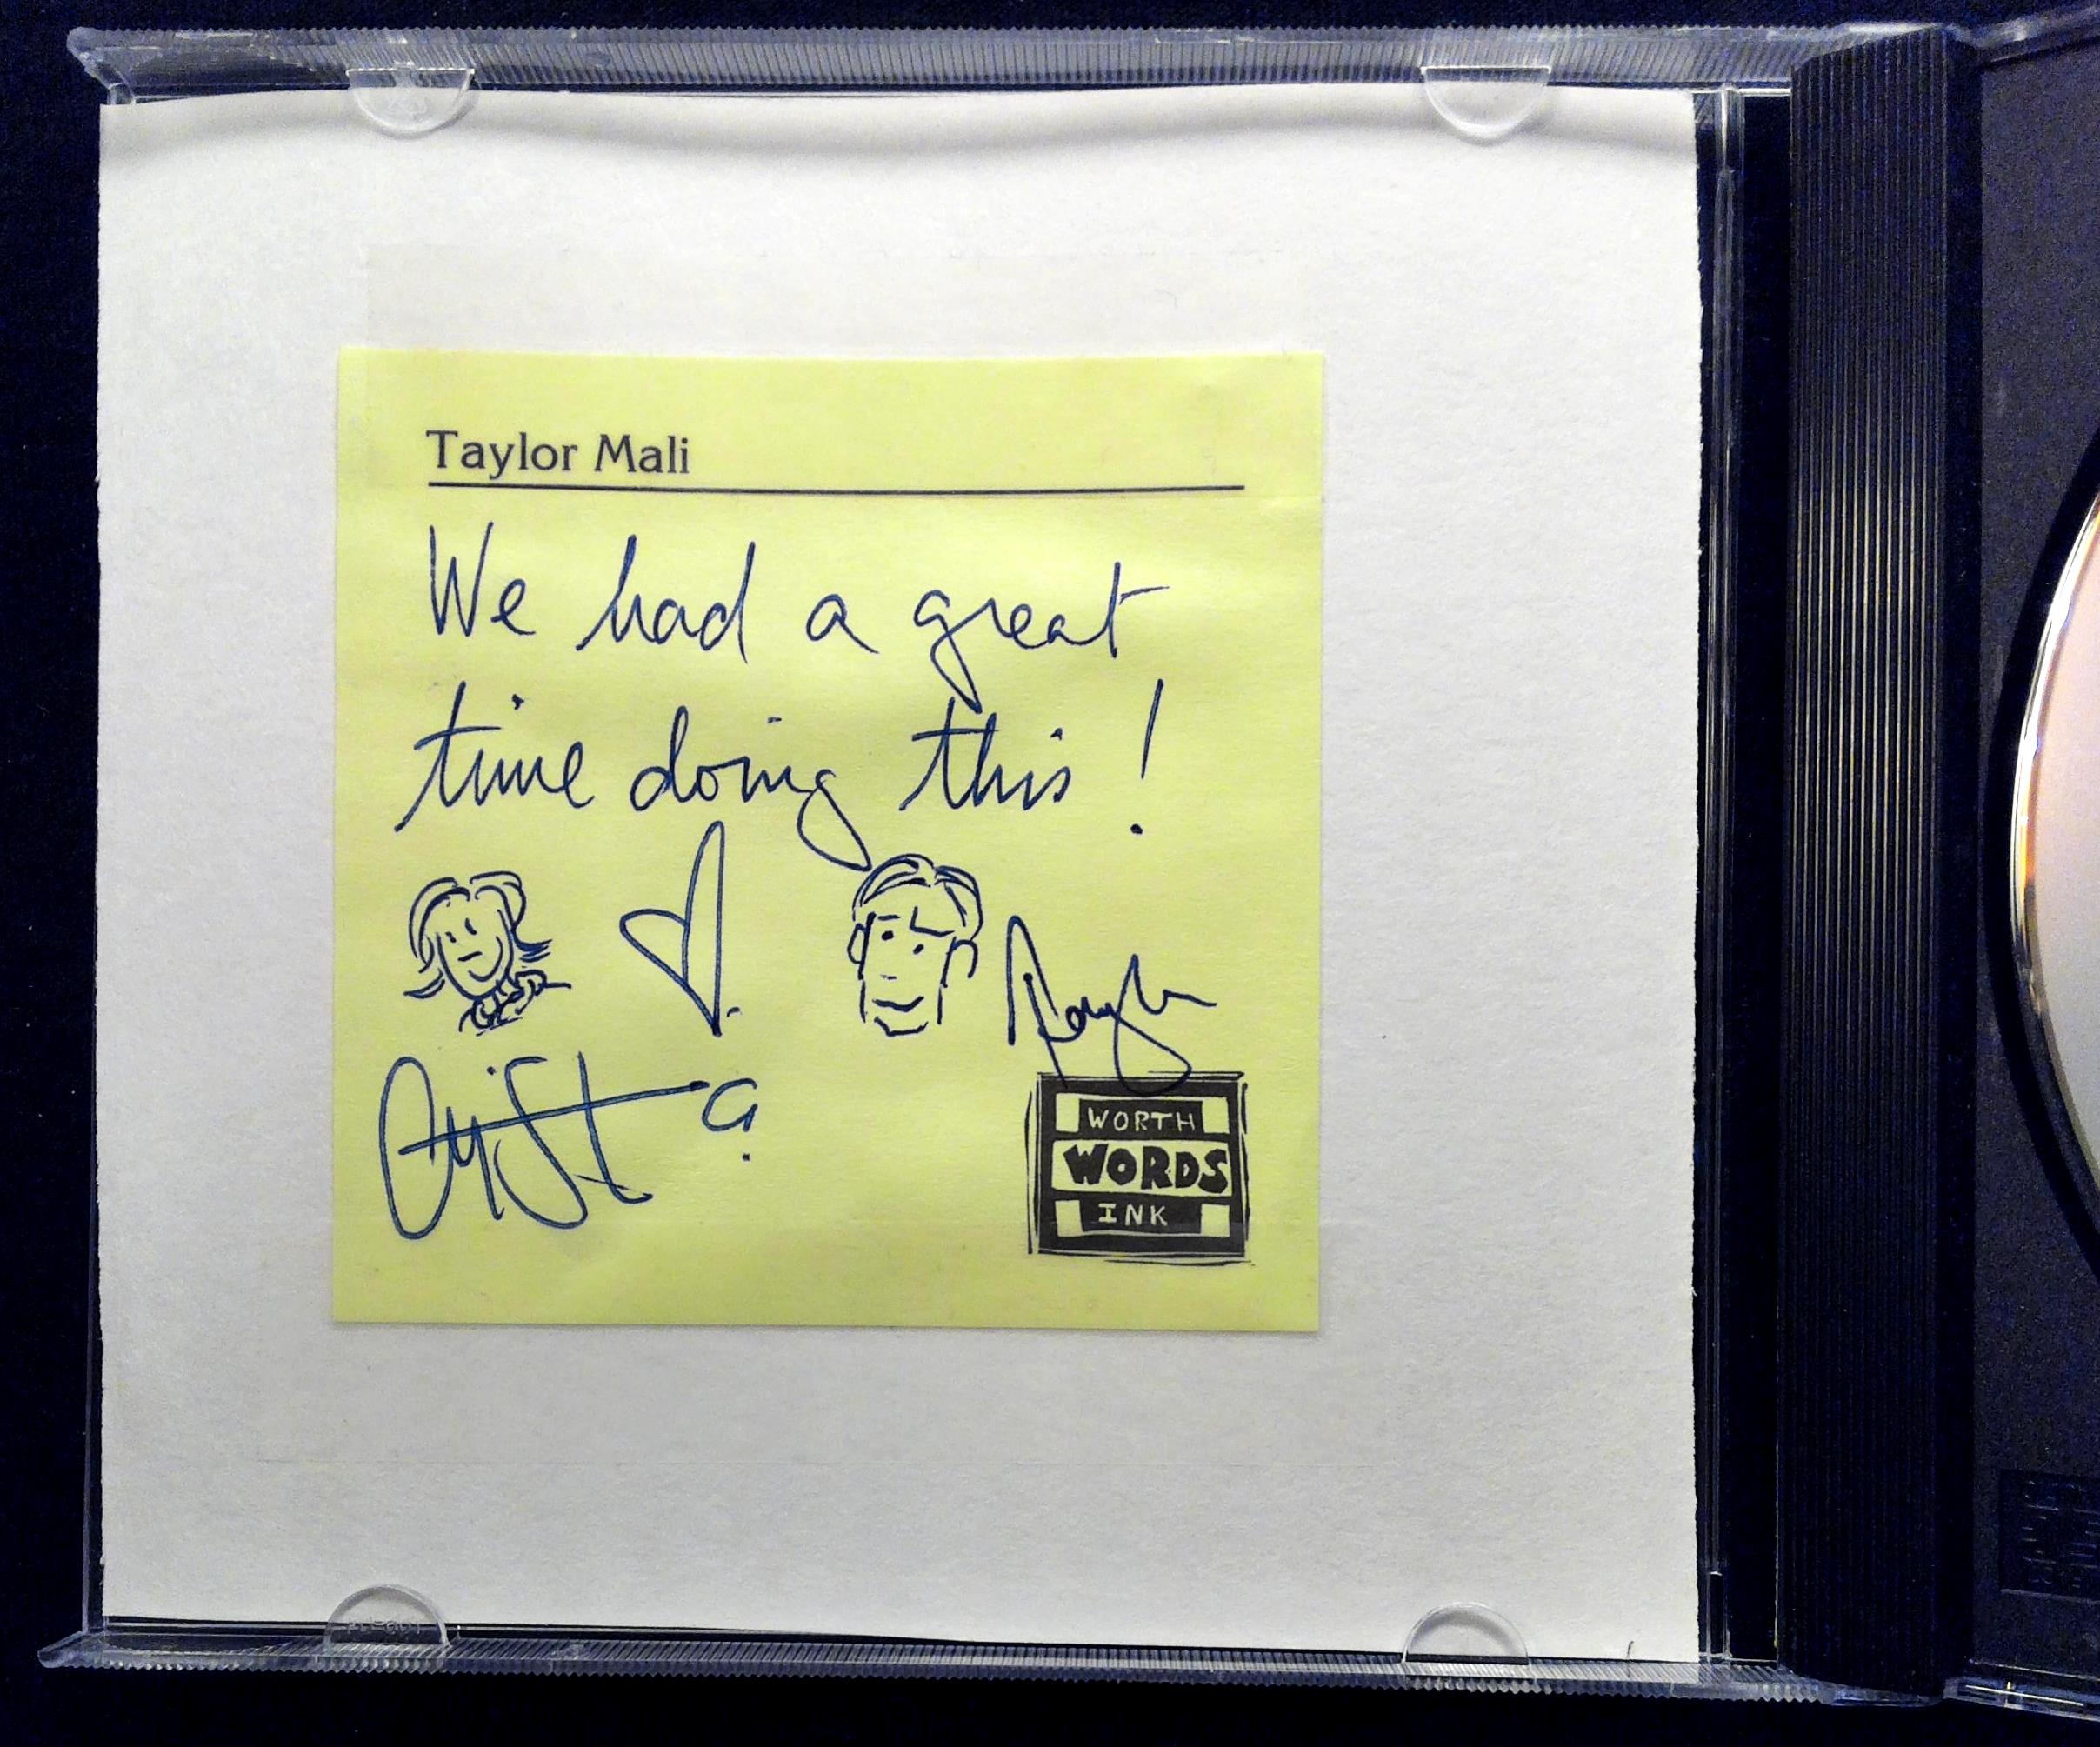 Taylor Mali
We had a great
time doing this!
WORTH
WORDS
INK